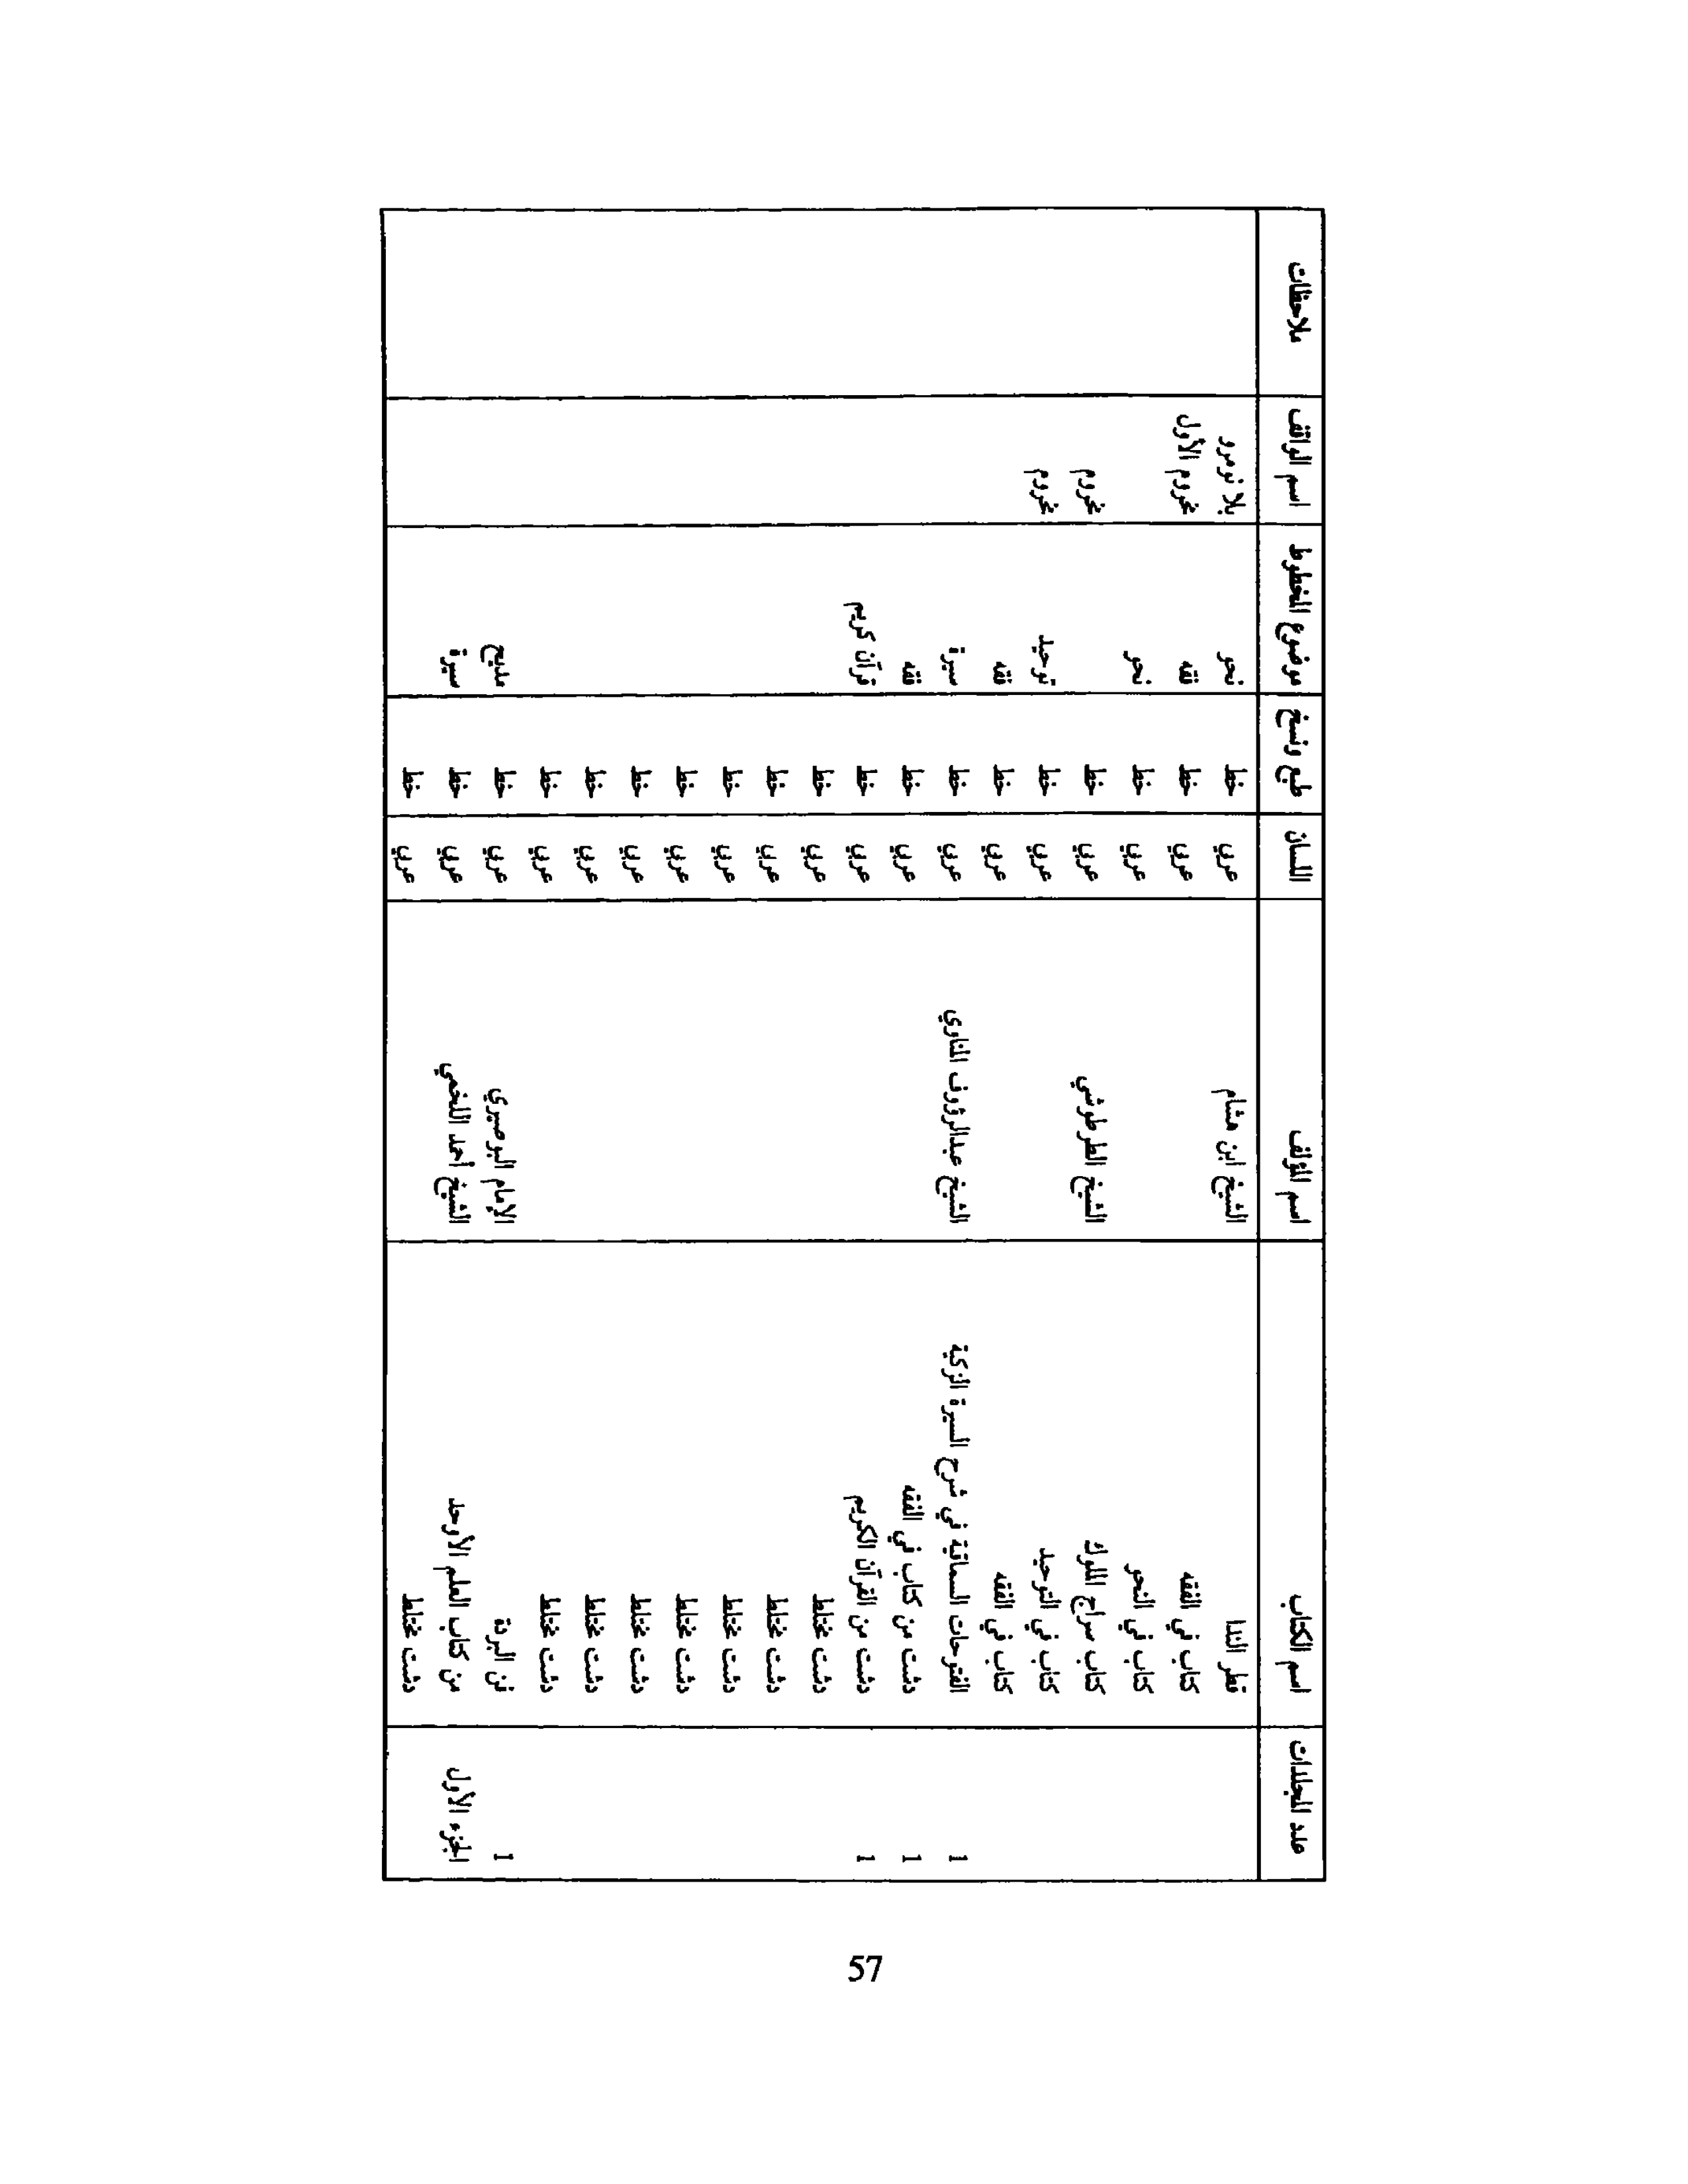 عدد المجلدات اسم الكتاب اسم المؤلف اللسان طبع ونسخ موضوع المخطوط اسم الواقف ملاحظات
قطر الندا الشيخ ابن هشام عربي خط نحو بلا نومرو
كتاب في الفقه عربي خط فقه مخروم الأول
كتاب في النحو عربي خط نحو
كتاب سراج الملوك الشيخ الطرطوشي عربي خط مخروم
كتاب في التوحيد عربي خط توحيد مخروم
كتاب في الفقه عربي خط فقه
1 الفتوحات السماقية في شرح السيرة الزكية الشيخ عبدالرؤوف المناوي عربي خط سيرة
1 دشت من كتاب في الفقه عربي خط فقه
1 دشت من القرآن الكريم عربي خط قرآن كريم
دشت مختلط عربي خط
دشت مختلط عربي خط
دشت مختلط عربي خط
دشت مختلط عربي خط
دشت مختلط عربي خط
دشت مختلط عربي خط
دشت مختلط عربي خط
1 فن البردة الإمام البوصيري عربي خط مديح
الجزء الأول من كتاب العلم الأوحد الشيخ أحمد اللخمي عربي خط سيرة
دشت مختلط عربي خط
57